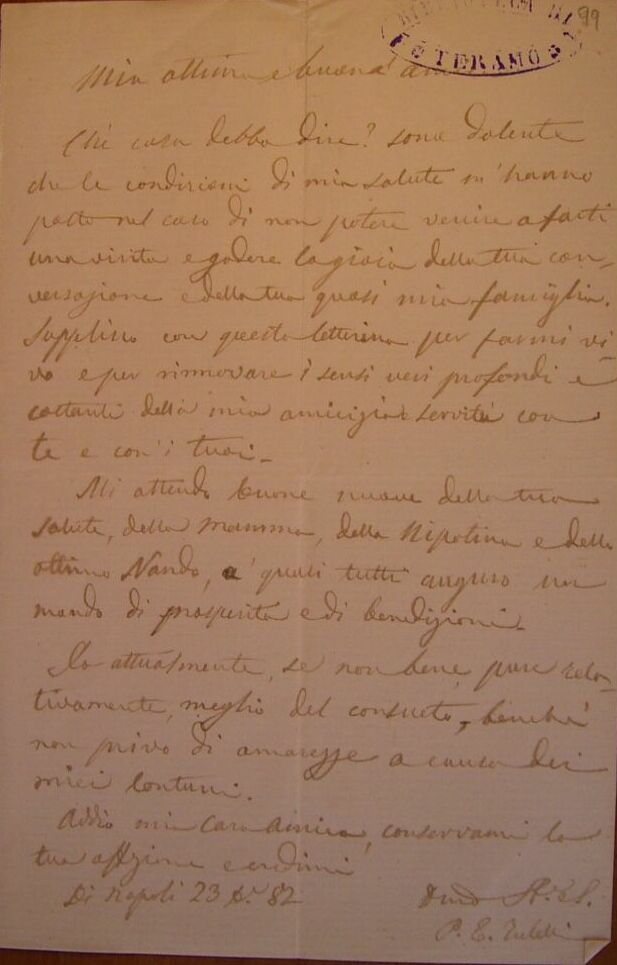 99
TERAMO
Mia ottima e buona
Che cosa debbo dire? sono dolente
che le condizioni di mia salute m'hanno
posto nel caso di non potere venire a farti
una visita e godere la gioia della tua con-
versazione e della tua quasi mia famiglia.
Supplisco con questa letterina per farmi vi-
vo e per rinnovare i sensi veri profondi e
costanti della mia amicizia e servitù con
te e con i tuoi.
Mi attendo buone nuove della tua
salute, della mamma, della Nipotina e dello
ottimo Nando, a' quali tutti auguro un
mondo di prosperità e di benedizioni.
Io attualmente, se non bene, pure rela-
tivamente, meglio del consueto, benché
non privo di amarezze a causa dei
miei lontani.
Addio mia cara amica, conservami la
tua affezione e credimi
Di Napoli 23 82
P. E.